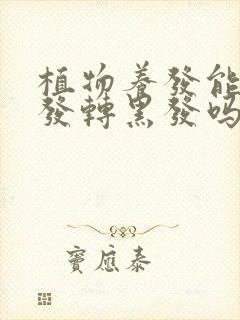 植物養發能
發轉黑發吗
竇應泰